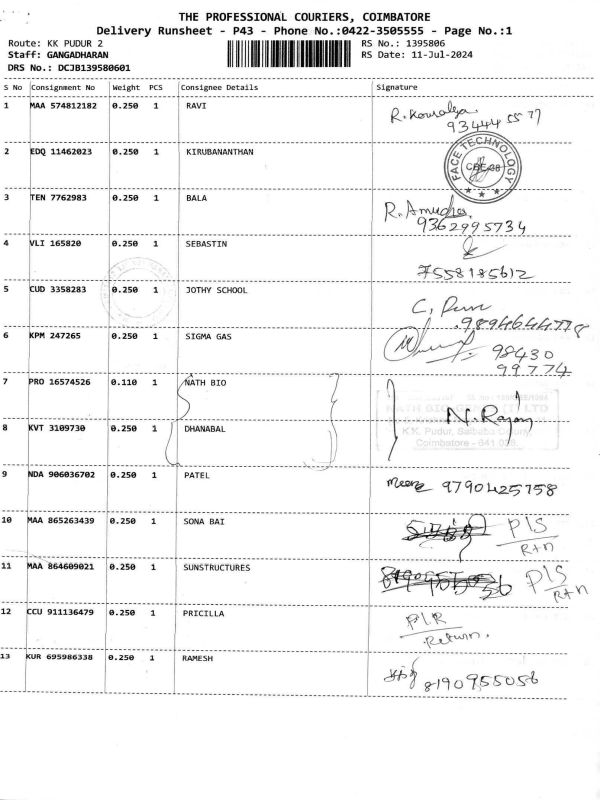 THE PROFESSIONAL COURIERS, COIMBATORE
Delivery Runsheet - P43 - Phone No.:0422-3505555 - Page No.:1
Route: KK PUDUR 2 RS No.: 1395806
Staff: GANGADHARAN RS Date: 11-Jul-2024
DRS No.: DCJB139580601
S No Consignment No Weight PCS Consignee Details Signature
1 MAA 574812182 0.250 1 RAVI R. Kousalya
93444 55 77
2 EDQ 11462023 0.250 1 KIRUBANANTHAN FACE TECHNOLOGY
CBE-38
3 TEN 7762983 0.250 1 BALA R. Amudha
9362995734
4 VLI 165820 0.250 1 SEBASTIN
7558185612
5 CUD 3358283 0.250 1 JOTHY SCHOOL
9894644778
6 KPM 247265 0.250 1 SIGMA GAS 98430
99774
7 PRO 16574526 0.110 1 NATH BIO N. Rajan
8 KVT 3109730 0.250 1 DHANABAL K.K. Pudur, Saibaba Colony
Coimbatore - 641 038.
9 NDA 906036702 0.250 1 PATEL Meera 9790425758
10 MAA 865263439 0.250 1 SONA BAI P/S
Rtn
11 MAA 864609021 0.250 1 SUNSTRUCTURES P/S
Rtn
12 CCU 911136479 0.250 1 PRICILLA P/R
Return.
13 KUR 695986338 0.250 1 RAMESH 8190955056